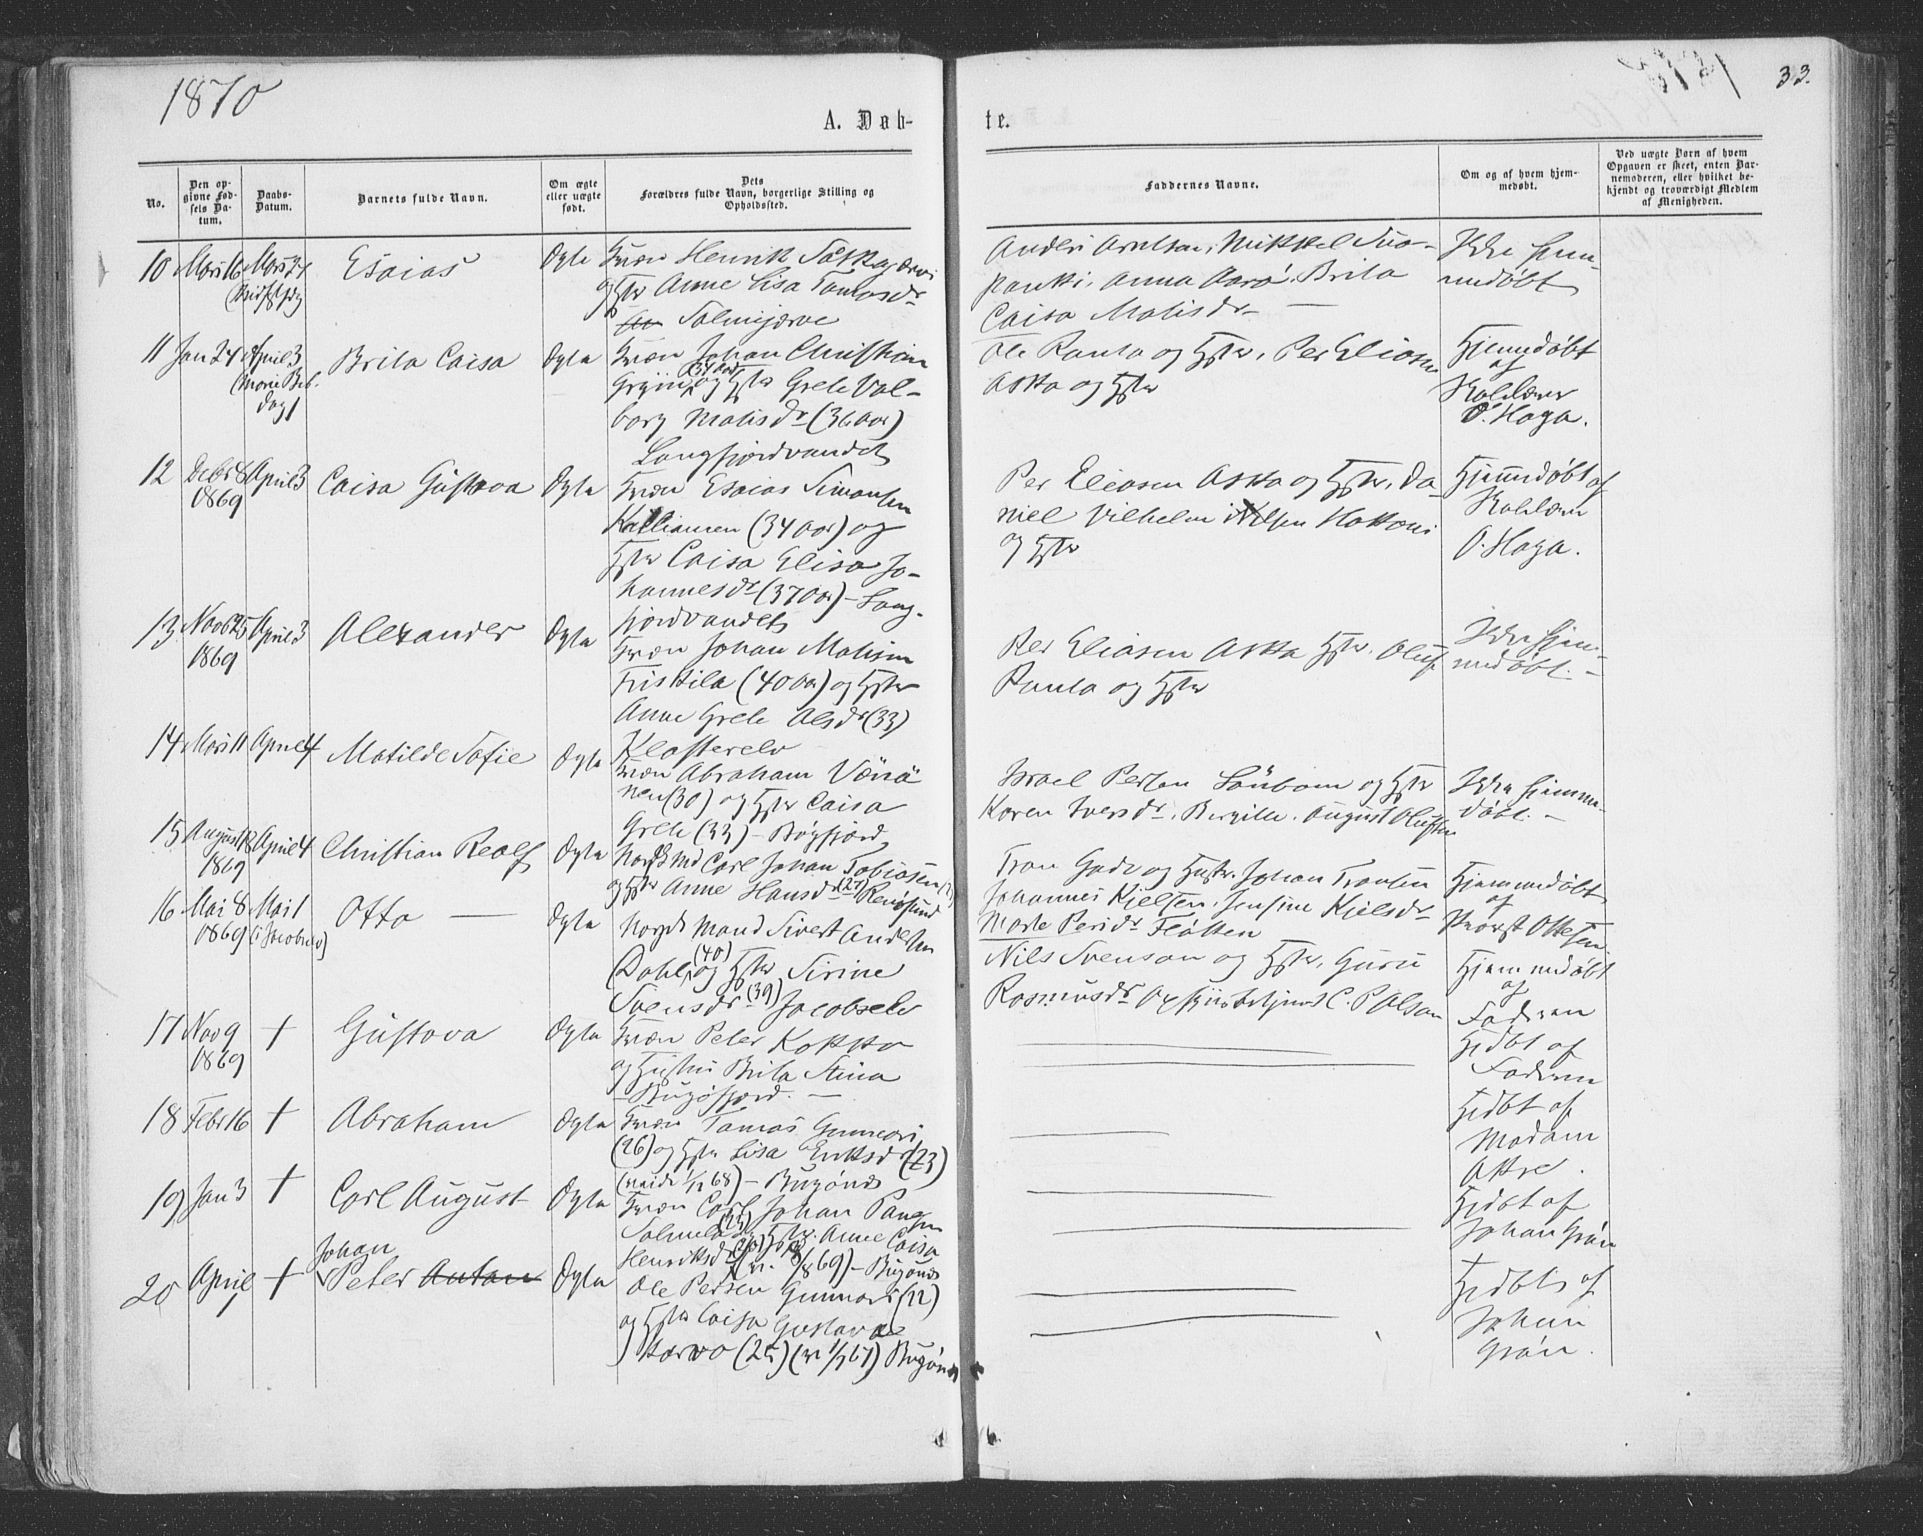 1870
33.
A. Døb-
te.
No.
Den op-
givne Fød-
sels Da-
tum.
Daabs-
Datum.
Barnets fulde Navn.
Om ægte
eller uægte
født.
Dets
Forældres fulde Navn, borgerlige Stilling og
Opholdssted.
Faddernes Navne.
Om og af hvem hjem-
medøbt.
Ved uægte Barn af hvem
Opgaven er skeet, enten Bar-
nemoderen, eller hvilket be-
kjendt og troværdigt Medlem
af Menigheden.
10 Mars 16 Mars 24 Esaias Ægte Kvæn Henrik
og Hstr Anne Lisa Tomasdr
Salmijærve
Anders Arntsen, Mikkel Suo-
panki, Anna Aarø, Brita
Caisa Matisdr
Ikke hjem-
medøbt
11 Jan 24 April 3 Brita Caisa Ægte Kvæn Johan Christian
Marie Beb.
dag
Grøn (34 aar) og Hstr Grete Val-
borg Matisdr (36 aar)
Langfjordvandet
Ole Ranta og Hstr, Per Eliasen
Akka og Hstr
Hjemmedøbt
af
Kvæn
O. Haga.
12 Decbr 8 April 3 Caisa Gustava Ægte Kvæn Esaias Simonsen
1869
Kalliainen (34 aar) og
Hstr Caisa Elisa Jo-
hannesdr (37 aar) - Lang-
fjordvandet
Per Eliasen Akka og Hstr, Da-
niel Vilhelm Nilsen
og Hstr
Hjemmedøbt af
O. Haga.
13 Novb 25 April 3 Alexander Ægte Kvæn Johan Matisen
1869
Tristila (40 aar) og Hstr
Anne Grete Olsdr (33)
Klosterelv
Per Eliasen Akka Hstr. Oluf
Ranta og Hstr
Ikke hjem-
medøbt. -
14 Mars 11 April 4 Matilde Sofie Ægte Kvæn Abraham Vänä
nen (30) og Hstr Caisa
Grete (33) - Bøgfjord
Israel Persen Lönbom og Hstr
Karen Iversdr, August Olufsen
Ikke hjemme-
døbt. -
15 August 18 April 4 Christian Reolf Ægte Norsk Md Carl Johan Tobiasen
1869
og Hstr Anne Hansdr (27) Renøsund
Tron Gade og Hustr. Johan Tronsen
Johannes Kjelsen, Jensine Kjelsdr
Marte Persdr Fløtten
Hjemmedøbt
af
Provst Ottesen
16 Mai 8 Mai 1 Otto Ægte Norsk Mand Sivert Andersen
1869 (i Jacobselv)
Dahl (40) og Hstr Sirine
Svensdr (39) Jacobselv
Nils Svenson og Hstr, Guru
Rasmusdr C. P. Olsen
Hjemmedøbt
af
Faderen
17 Nov 9 + Gustava Ægte Kvæn Peter Kokko
1869
og Hustru Brita Stina
- Bugøfjord. -
Hjdbt af
Faderen
18 Febr 16 + Abraham Ægte Kvæn Tomas Gunnari
(26) og Hstr Lisa Eriksdr (23)
68) - Bugønæs
Hjdbt af
Madam
Akre.
19 Jan 3 + Carl August Ægte Kvæn Carl Johan
(25) Hstr. Anne Caisa
Henriksdr 69) - Bugønæs
Hjdbt af
Johan Grøn
20 April 1 + Johan
Peter Anton Ægte Ole Persen Gunnari (22)
og Hstr Caisa Gustava
Karvo (25) 67) Bugønæs
Hjdbt af
Johan
Grøn.